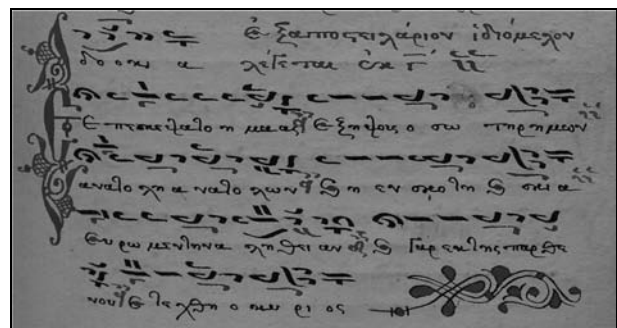 Ἐξαποστειλάριον ἰδιόμελον
α λέγεται ἐκ γ
Ε πεσκεψατο η μας εξ η ψους ο σω τηρ ημων
ανατο λη α νατο λων ϗ η εν σκοτη ϗ σκι α
Ευ ρω μεν την α λη θει αν ϗ γαρ εκ της παρθε
νου ε τε χθη ο κυ ρι ος